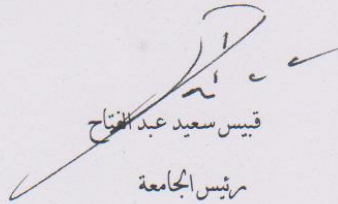 قبيس سعيد عبد الفتاح
رئيس الجامعة